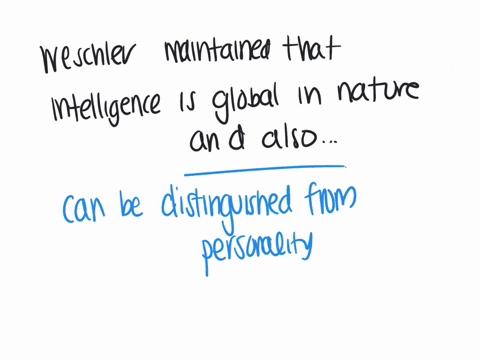 Weschler maintained that
Intelligence is global in nature
and also...
can be distinguished from
personality